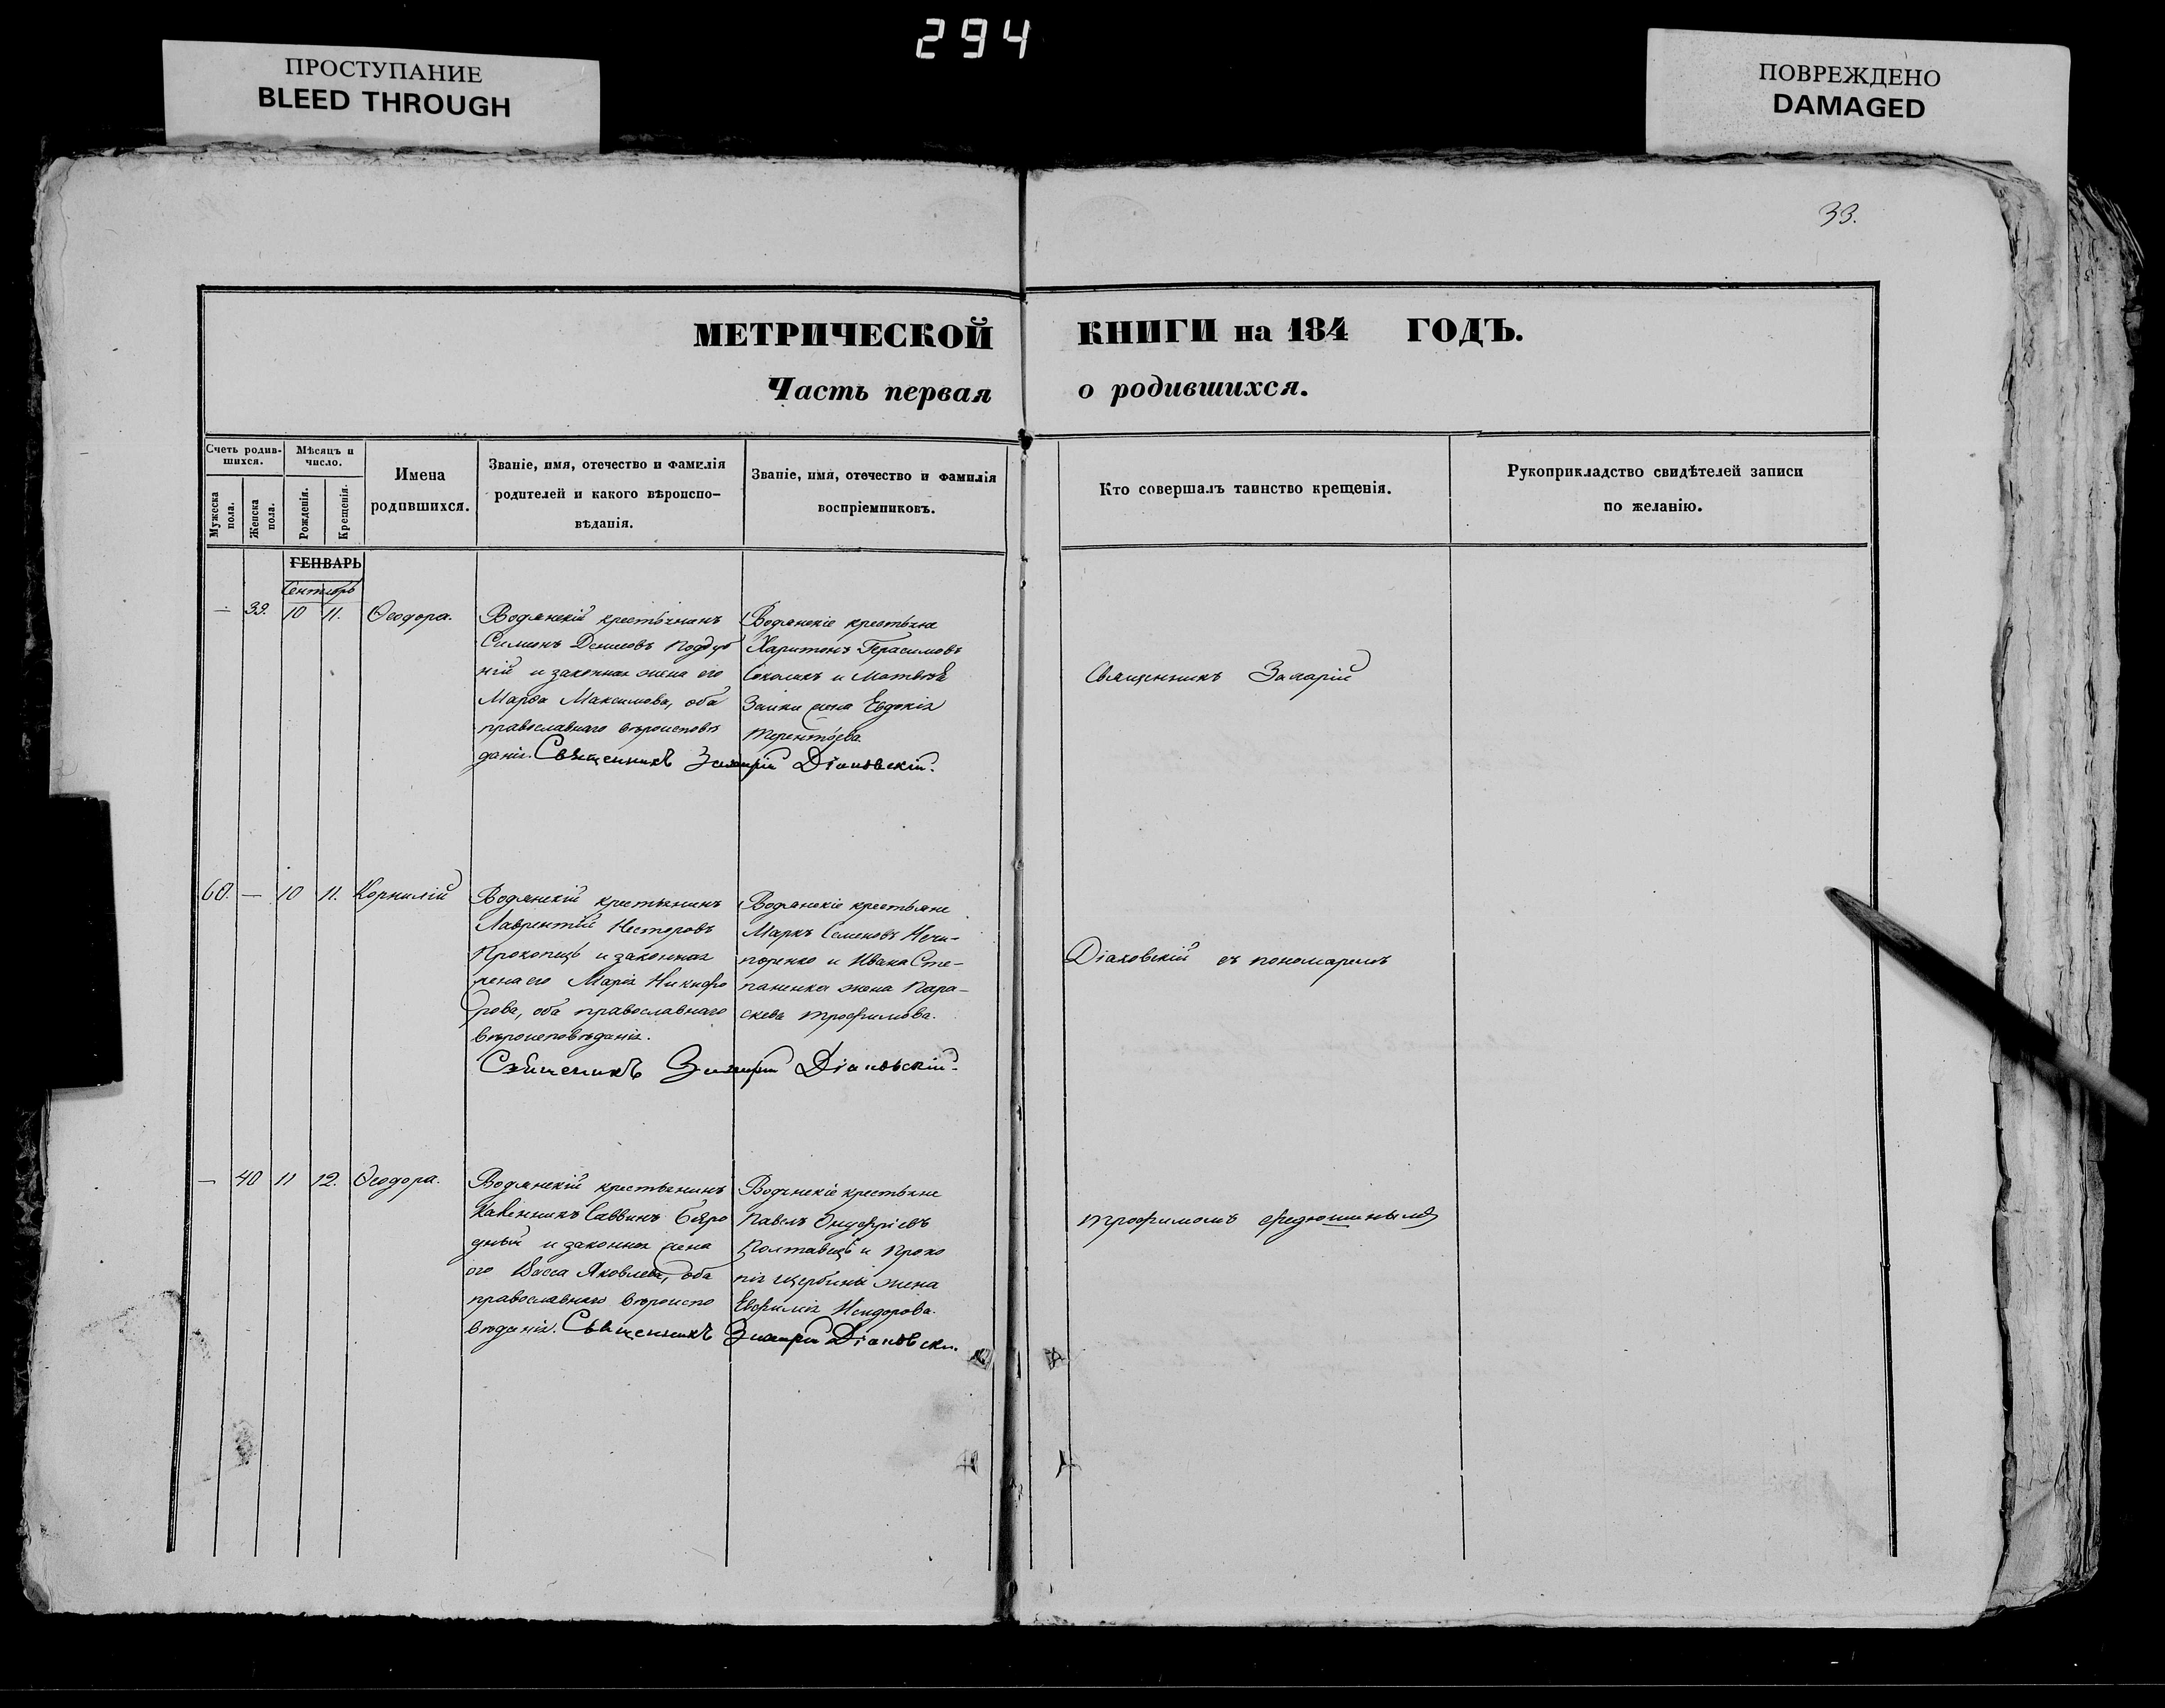 294
ПРОСТУПАНИЕ
BLEED THROUGH
ПОВРЕЖДЕНО
DAMAGED
33.
МЕТРИЧЕСКОЙ КНИГИ на 184 ГОДЪ.
Часть первая о родившихся.
Счетъ родив-
шихся.
Мужеска
пола.
Женска
пола.
Мѣсяцъ и
число.
Рожденія.
Крещенія.
Имена
родившихся.
Званіе, имя, отечество и фамилія
родителей и какого вѣроиспо-
вѣданія.
Званіе, имя, отечество и фамилія
воспріемниковъ.
Кто совершалъ таинство крещенія.
Рукоприкладство свидѣтелей записи
по желанію.
ГЕНВАРЬ
Сентябрь
— 39. 10 11. Ѳеодора.
Водянскій крестьянинъ
Симеонъ Денисовъ Поддуб
ній и законная жена его
Марѳа Максимова, оба
православнаго вѣроисповѣ
данія. Священникъ Захарій Діаковскій.
Водянскіе крестьяне
Харитонъ Герасимовъ
Соколикъ и Матвѣя
Заики жена Евдокія
Терентьева.
Священникъ Захарій
60. — 10 11. Корнилій
Водянскій крестьянинъ
Лаврентій Несторовъ
Прокопецъ и законная
жена его Марія Никифо
рова, оба православнаго
вѣроисповѣданія.
Священникъ Захарій Діаковскій.
Водянскіе крестьяне
Маркъ Семеновъ Нечи-
поренко и Ивана Сте-
паненка жена Пара-
скева Трофимова.
Діаковскій съ пономаремъ
— 40 11 12. Ѳеодора.
Водянскій крестьянинъ
Саввинъ
и законная жена
его Васса Яковлева, оба
православнаго вѣроиспо
вѣданія. Священникъ Захарій Діаковскій.
Водянскіе крестьяне
Павелъ Онуфріевъ
Полтавецъ и Проко
пія Щербины жена
Евфимія Исидорова.
Трофимомъ Федюшинымъ